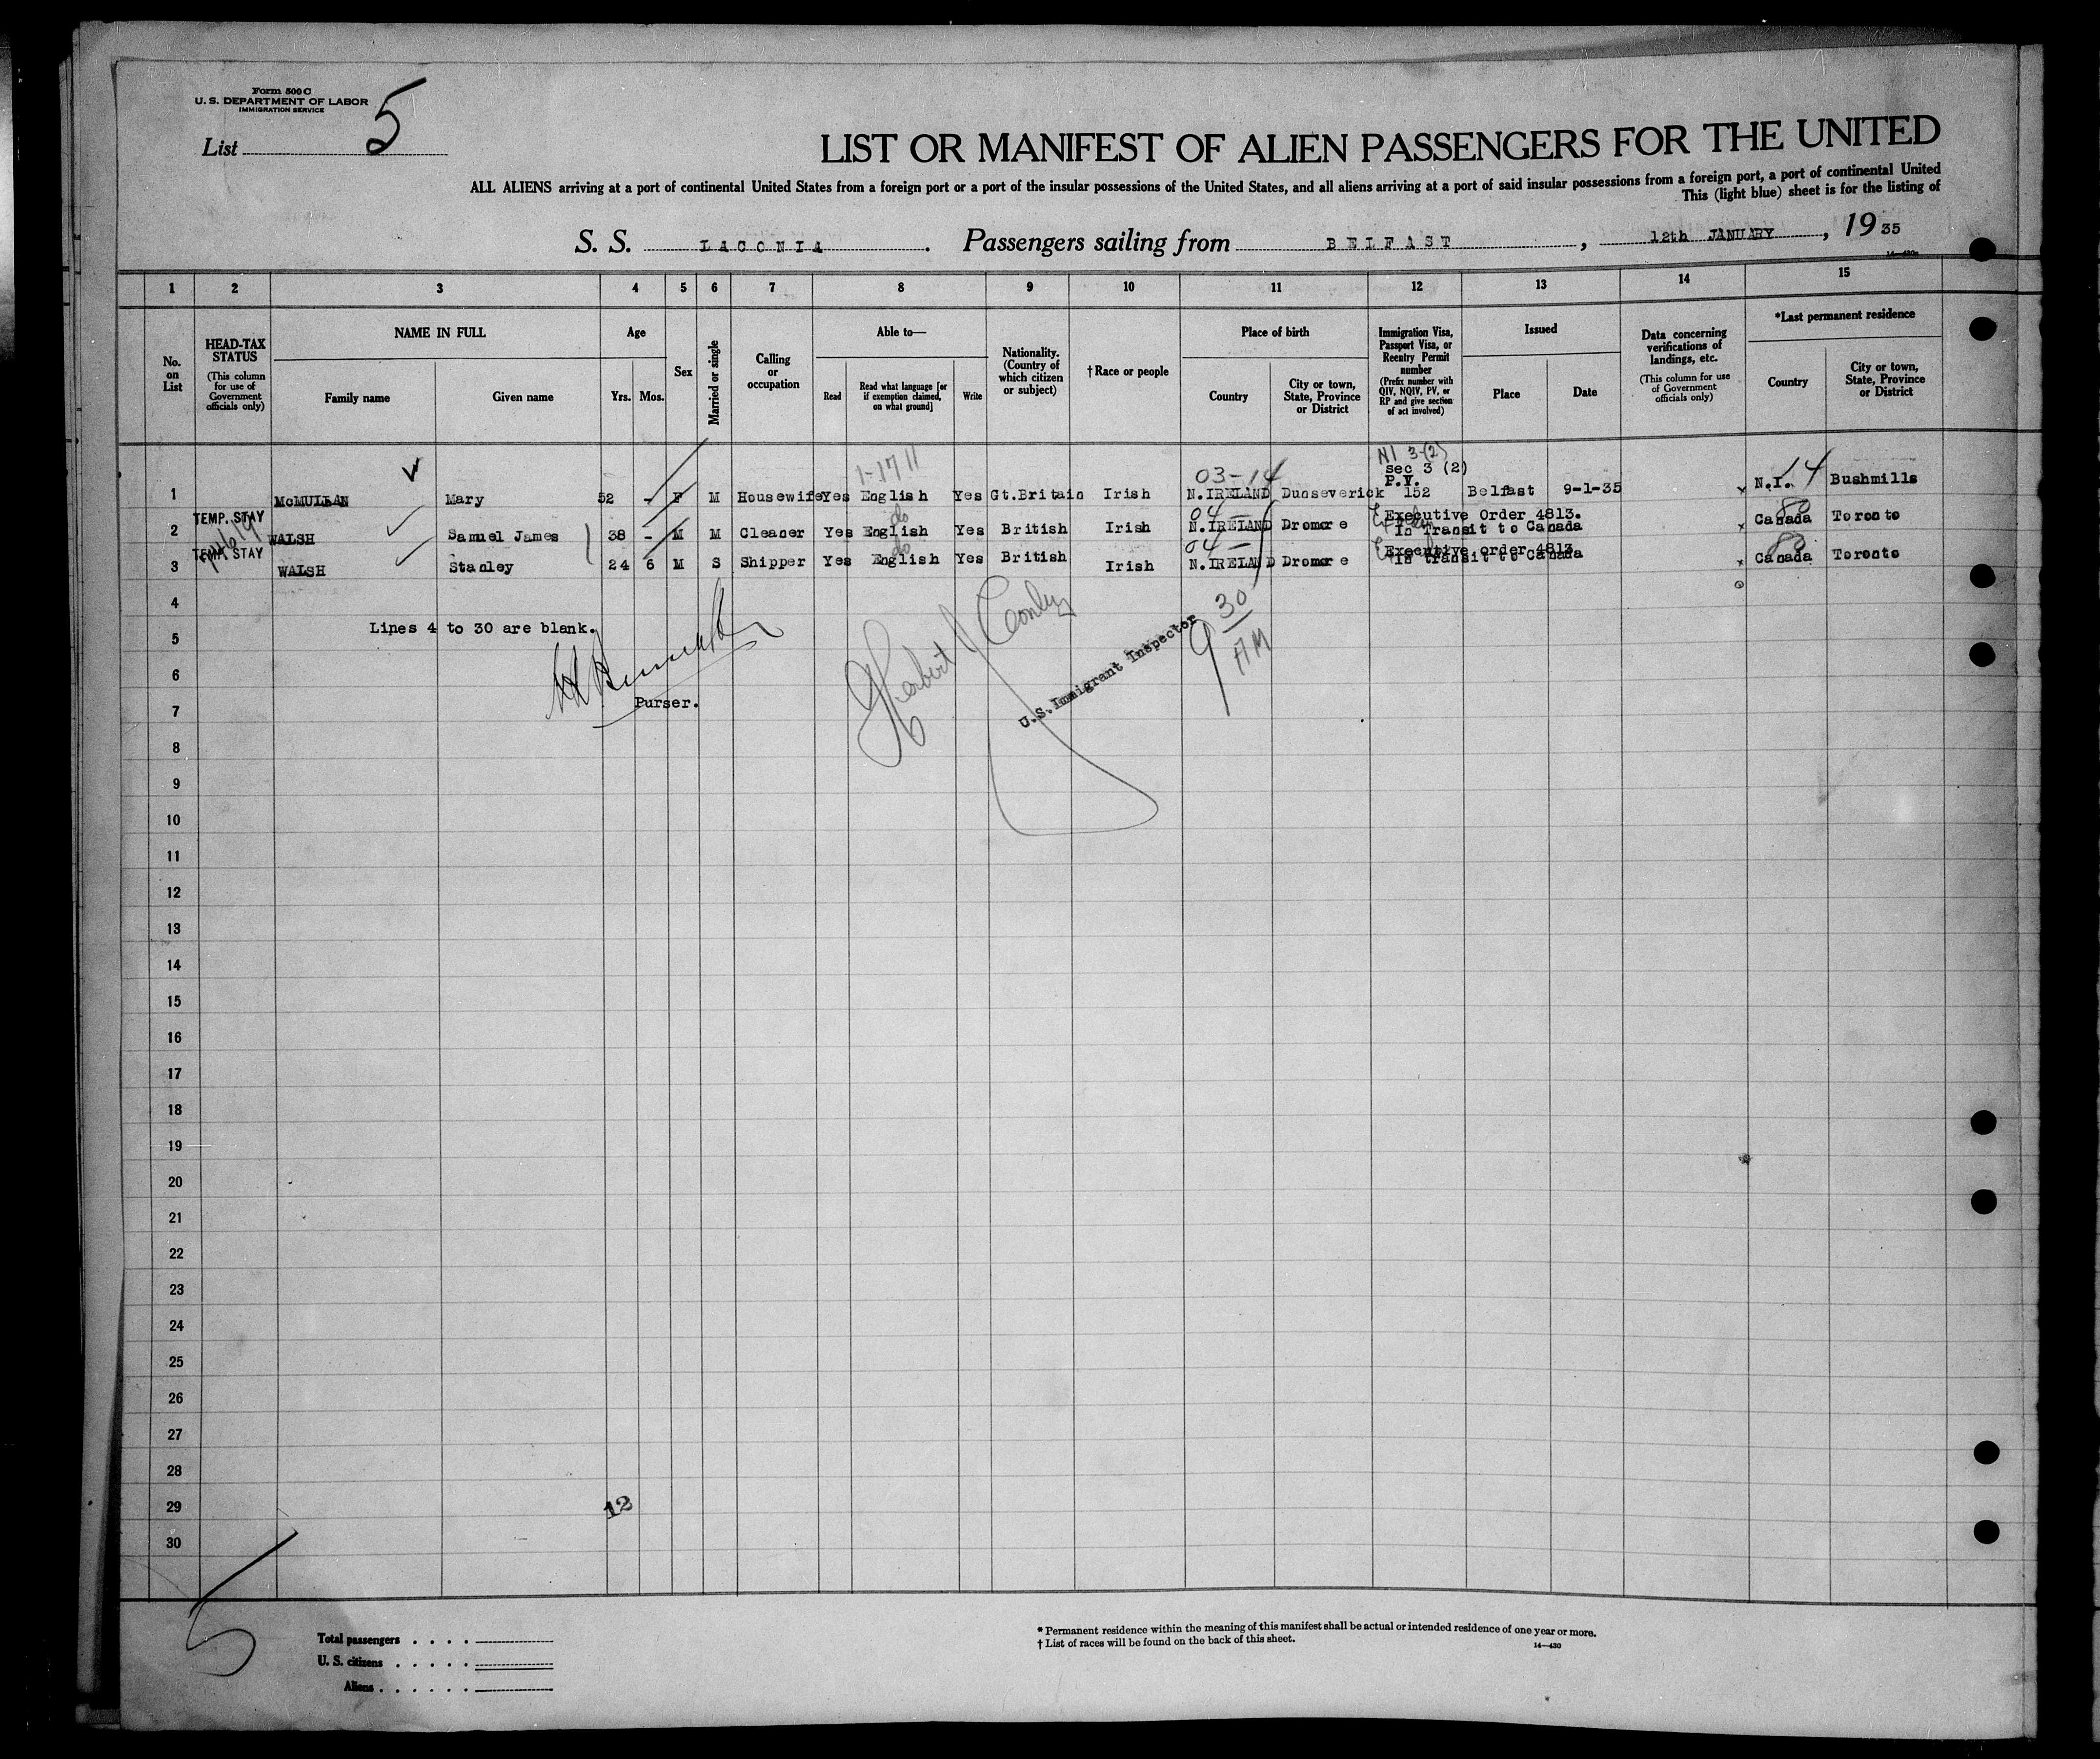 Form 500 C
U. S. DEPARTMENT OF LABOR
IMMIGRATION SERVICE
List 5
LIST OR MANIFEST OF ALIEN PASSENGERS FOR THE UNITED
ALL ALIENS arriving at a port of continental United States from a foreign port or a port of the insular possessions of the United States, and all aliens arriving at a port of said insular possessions from a foreign port, a port of continental United
This (light blue) sheet is for the listing of
S. S. LACONIA . Passengers sailing from BELFAST , 12th JANUARY , 19 35
1 2 3 4 5 6 7 8 9 10 11 12 13 14 15
No. on List
HEAD-TAX STATUS (This column for use of Government officials only)
NAME IN FULL
Family name Given name
Age
Yrs. Mos.
Sex
Married or single
Calling or occupation
Able to—
Read Read what language [or if exemption claimed, on what ground] Write
Nationality. (Country of which citizen or subject)
†Race or people
Place of birth
Country City or town, State, Province or District
Immigration Visa, Passport Visa, or Reentry Permit number (Prefix number with QIV, NQIV, PV, or RP and give section of act involved)
Issued
Place Date
Data concerning verifications of landings, etc. (This column for use of Government officials only)
*Last permanent residence
Country City or town, State, Province or District
1-17 11 03-14 NI 3-(2) 14
sec 3 (2)
P.V.
1 McMULLAN Mary 52 - F M Housewife Yes English Yes Gt.Britain Irish N.IRELAND Dunseverick 152 Belfast 9-1-35 x N.I. Bushmills
TEMP. STAY do 04 - Executive Order 4813. 80
2 WALSH Samuel James 38 - M M Cleaner Yes English Yes British Irish N.IRELAND Dromore In Transit to Canada x Canada Toronto
TEMP. STAY do 04 - Executive order 4813 80
3 WALSH Stanley 24 6 M S Shipper Yes English Yes British Irish N.IRELAND Dromore In transit to Canada x Canada Toronto
4
Lines 4 to 30 are blank.
5
6
Purser.
7
Herbert J Conley
U.S. Immigrant Inspector
9 30 AM
8
9
10
11
12
13
14
15
16
17
18
19
20
21
22
23
24
25
26
27
28
29 12
30
5
Total passengers . . . .
U. S. citizens . . . . .
Aliens . . . . . .
* Permanent residence within the meaning of this manifest shall be actual or intended residence of one year or more.
† List of races will be found on the back of this sheet.
14—430